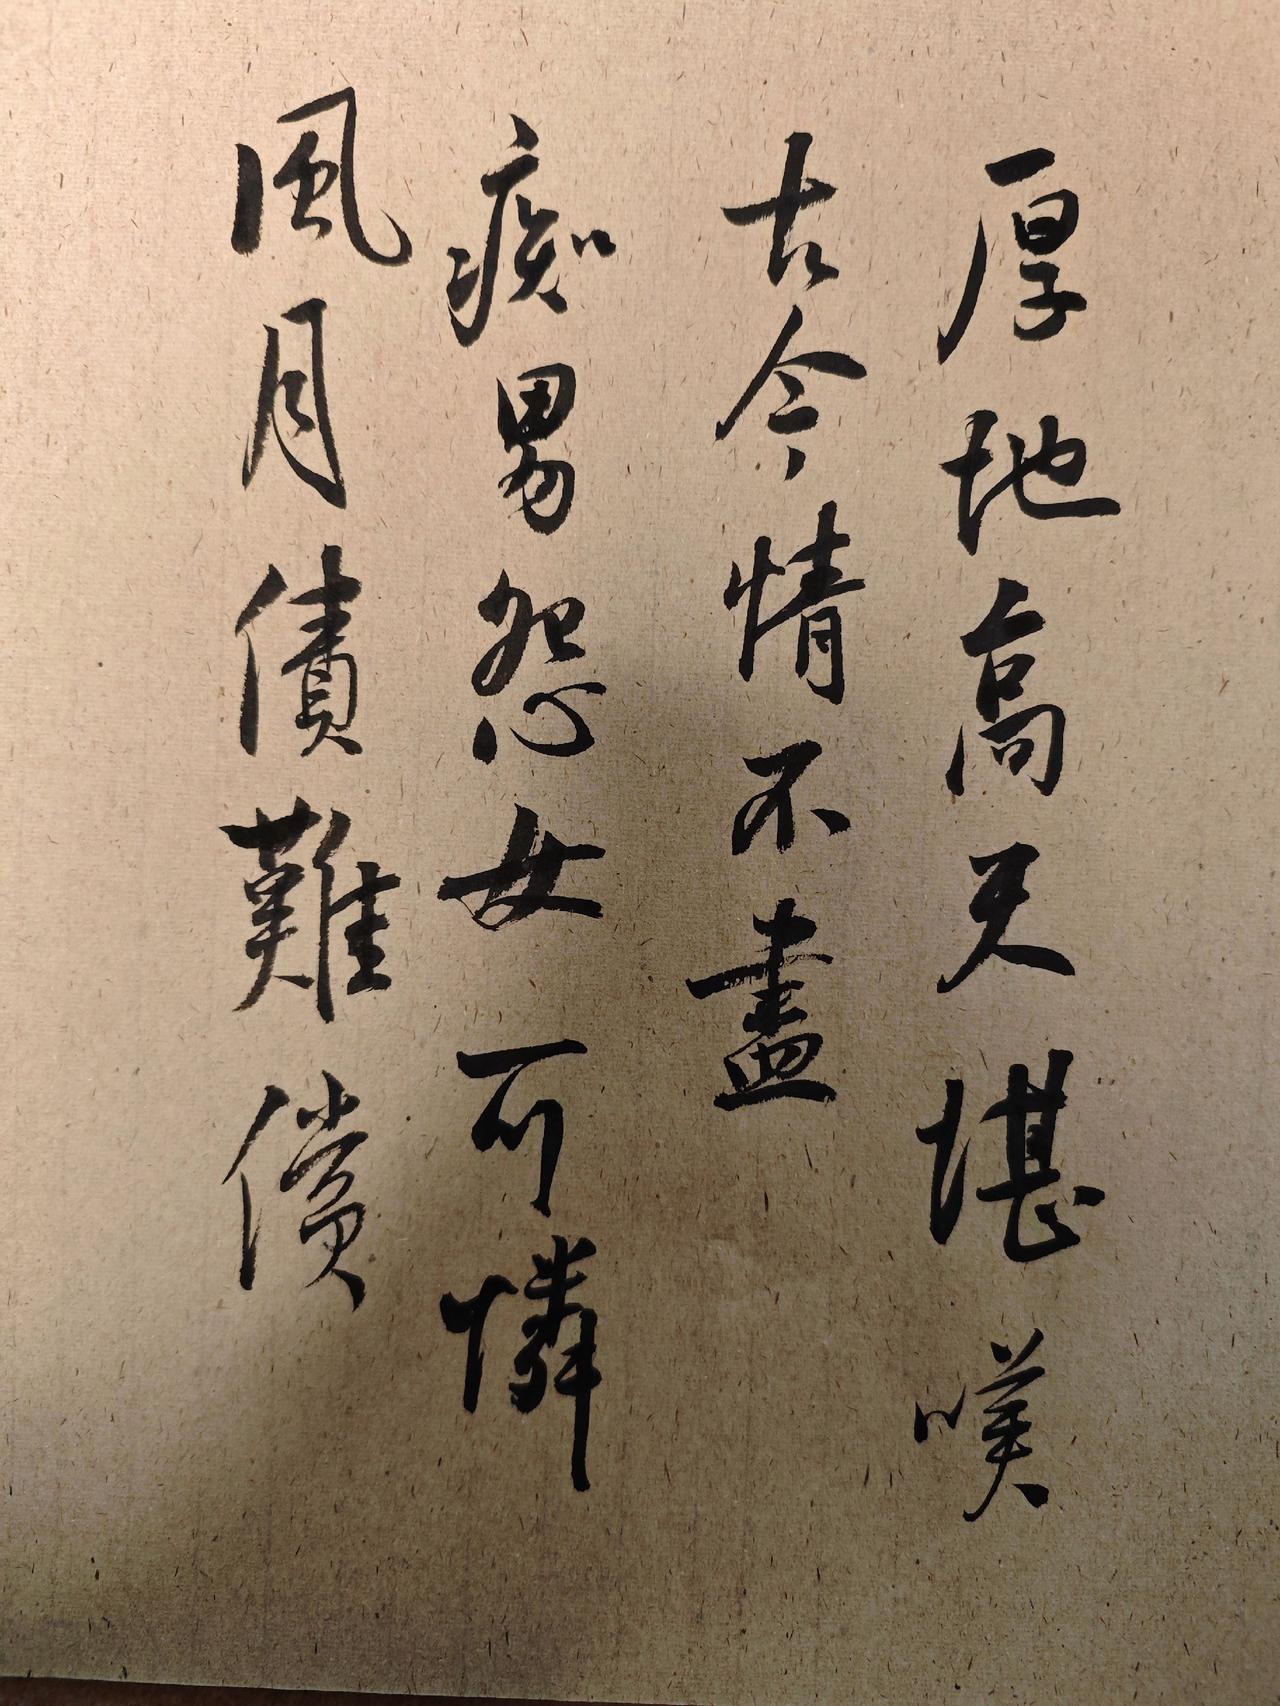 厚地高天堪嘆
古今情不盡
痴男怨女可憐
風月債難償